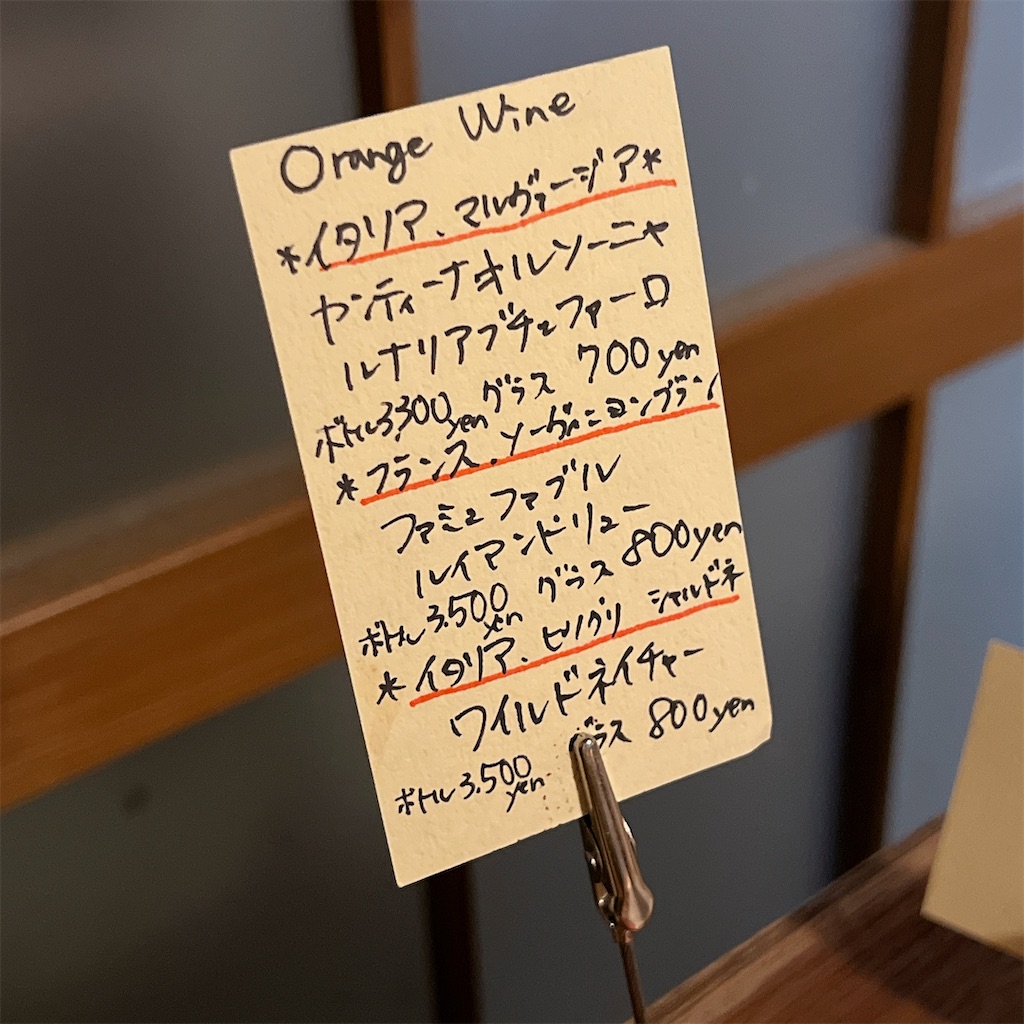 Orange Wine
*イタリア、マルヴァージア*
ヤンティーナオルソーニャ
ルナリアブチェファーロ
ボトル3,300yen グラス 700yen
*フランス、ソーヴィニヨンブラン
ファミュファブル
ルイアンドリュー
ボトル3.500yen グラス 800yen
*イタリア、ピノグリ シャルドネ
ワイルドネイチャー
ボトル3.500yen グラス 800yen